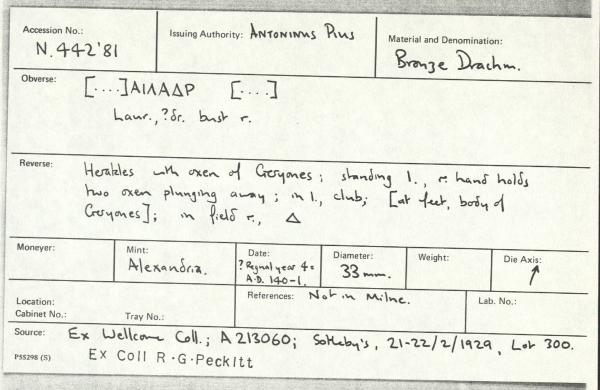 Accession No.: N.442'81
Issuing Authority: ANTONINUS PIUS
Material and Denomination: Bronze Drachm.
Obverse: [....]ΑΙΛΑΔΡ [....]
Laur., ?dr. bust r.
Reverse: Herakles with oxen of Geryones; standing l., r. hand holds
two oxen plunging away; in l., club; [at feet, body of
Geryones]; in field r., Δ
Moneyer:
Mint: Alexandria.
Date: ?Regnal year 4=
A.D. 140-1.
Diameter: 33 mm.
Weight:
Die Axis: ↑
Location:
Cabinet No.: Tray No.:
References: Not in Milne.
Lab. No.:
Source: Ex Wellcome Coll.; A213060; Sotheby's, 21-22/2/1929, Lot 300.
P55298 (S) Ex Coll R.G.Peckitt